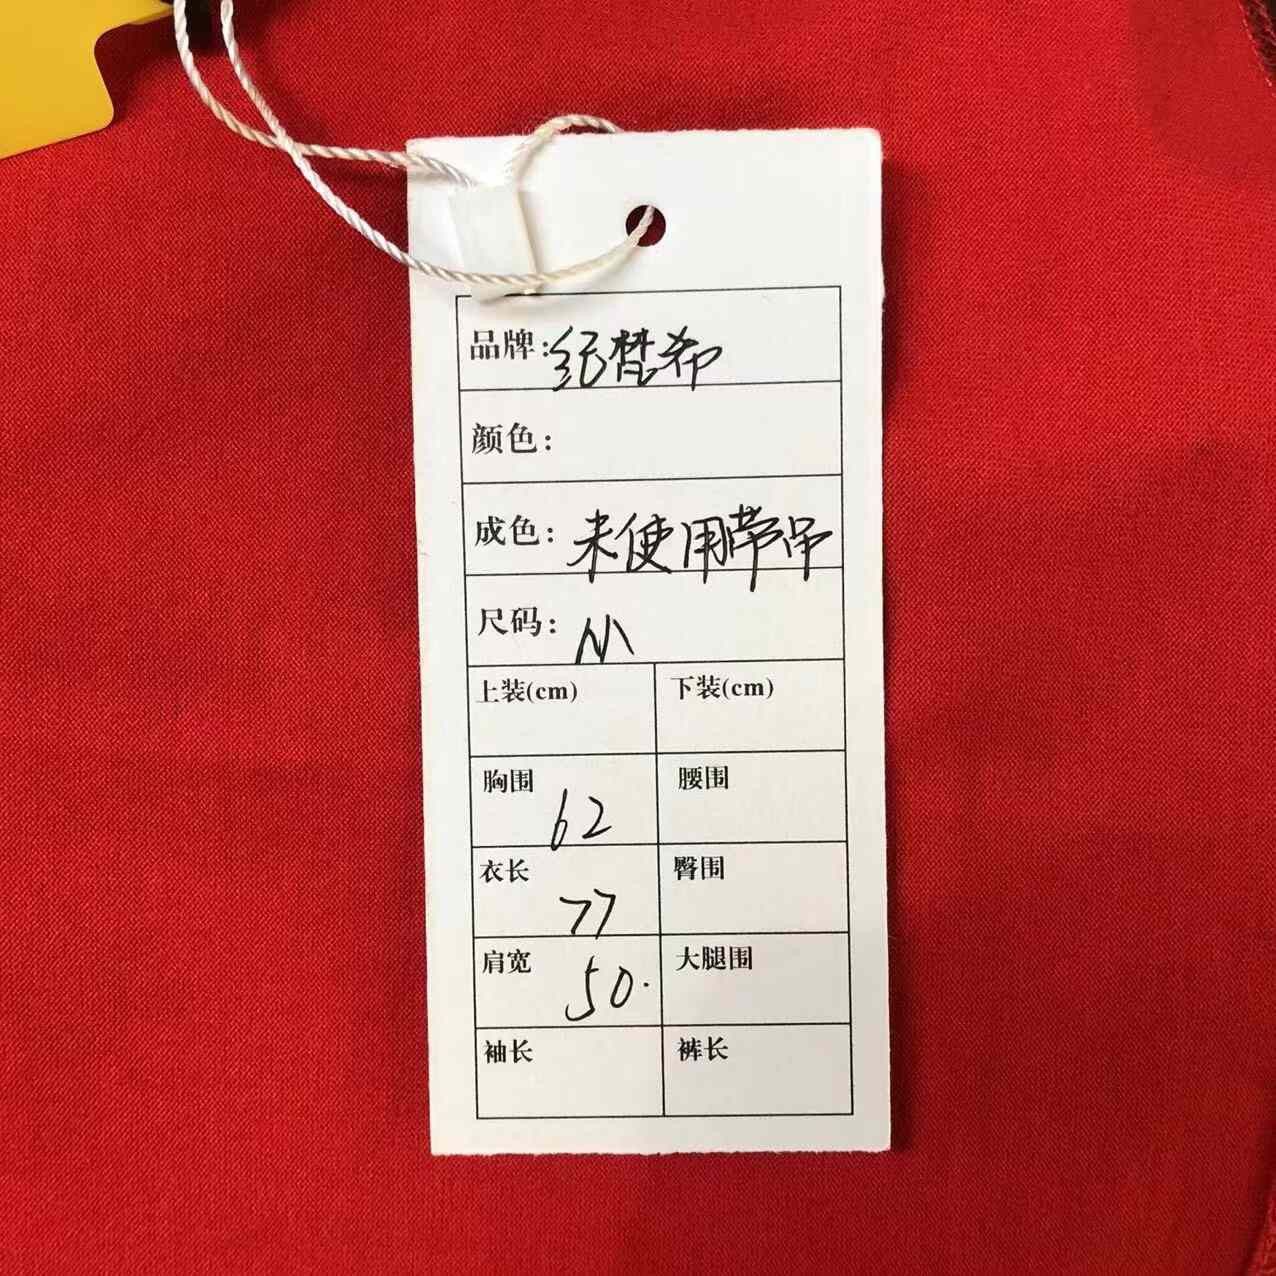 品牌:纪梵希
颜色:
成色:未使用带吊
尺码:M
上装(cm) 下装(cm)
胸围 62 腰围
衣长 77 臀围
肩宽 50. 大腿围
袖长 裤长